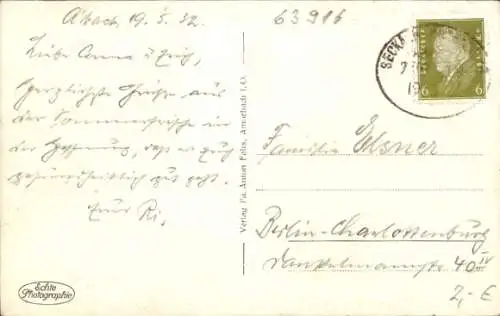 A'bach, 19. 5. 32.
Liebe Anna u. Erich,
Herzlichste Grüße aus
der Sommerfrische in
der Hoffnung, daß es Euch
gesundheitlich gut geht.
Eure Ri.
Echte
Photographie
Verlag Fa. Anton Fehn, Amorbach i. O.
63916
SECKA
6 6
Familie Elsner
Berlin-Charlottenburg
Dankelmannstr. 40 IV
2,- €